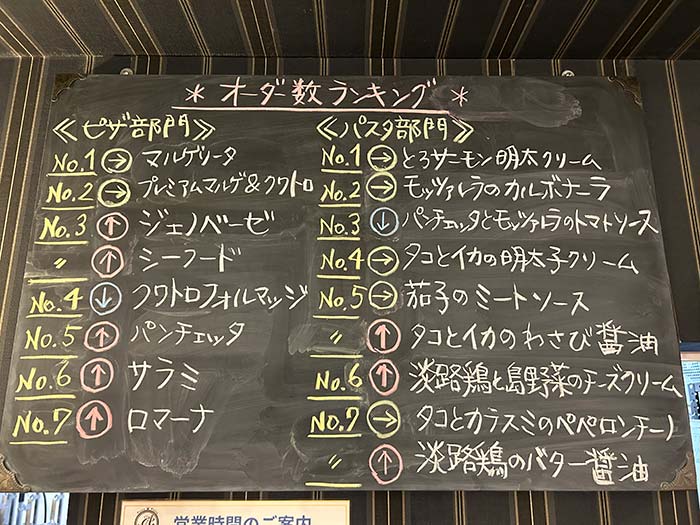 * オーダ数ランキング *
≪ピザ部門≫
No.1 → マルゲリータ
No.2 → プレミアムマルゲ&クワトロ
No.3 ↑ ジェノベーゼ
〃 ↑ シーフード
No.4 ↓ クワトロフォルマッジ
No.5 ↑ パンチェッタ
No.6 ↑ サラミ
No.7 ↑ ロマーナ
≪パスタ部門≫
No.1 → とろサーモン明太クリーム
No.2 → モッツァレラのカルボナーラ
No.3 ↓ パンチェッタとモッツァレラのトマトソース
No.4 → タコとイカの明太子クリーム
No.5 → 茄子のミートソース
〃 ↑ タコとイカのわさび醤油
No.6 ↑ 淡路鶏と島野菜のチーズクリーム
No.7 → タコとカラスミのペペロンチーノ
〃 ↑ 淡路鶏のバター醤油
営業時間のご案内